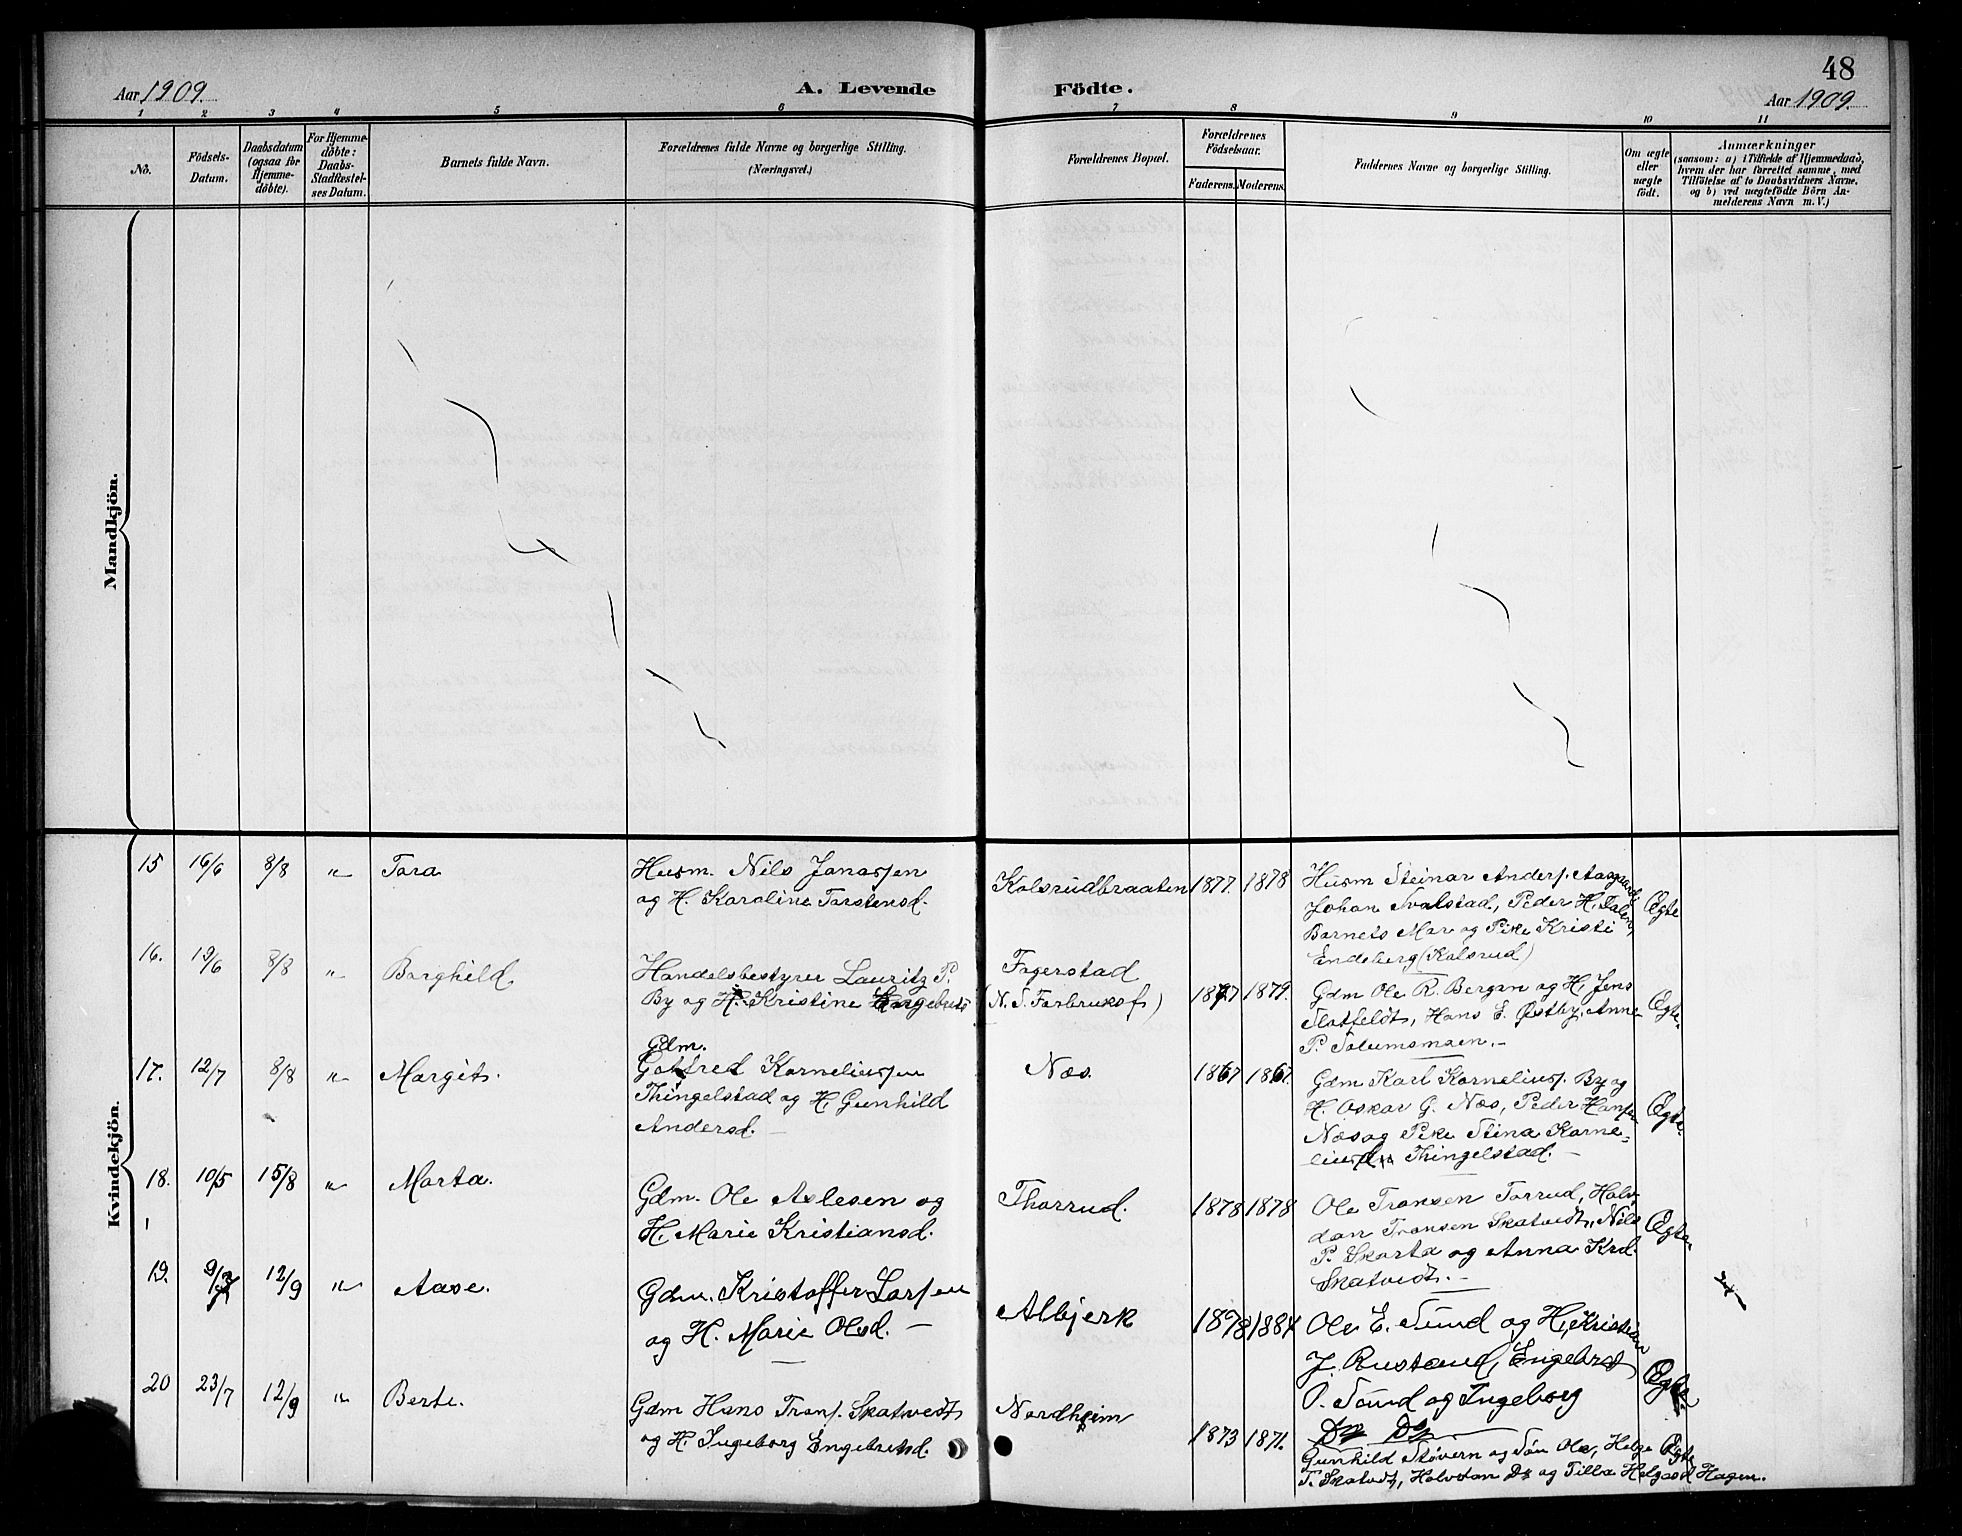 48
Aar 1909.
A. Levende
Födte.
Aar 1909.
1 2 3 4 5 6 7 8 9 10 11
No.
Födsels-
Datum.
Daabsdatum
(ogsaa for
Hjemme-
døbte).
For Hjemme-
døbte:
Daabs-
Stadfæstel-
ses Datum.
Barnets fulde Navn.
Forældrenes fulde Navne og borgerlige Stilling.
(Næringsvei.)
Forældrenes Bopæl.
Forældrenes
Födselsaar.
Faderens. Moderens.
Faddernes Navne og borgerlige Stilling.
Om ægte
eller
uægte
født.
Anmærkninger
(saasom: a) i Tilfælde af Hjemmedaab,
hvem der har forrettet samme, med
Tilföielse af to Daabsvidners Navne,
og b) ved uægtefödte Börn An-
melderens Navn m. V.)
Mandkjön.
Kvindekjön.
15 16/6 8/8 " Tora
Husm. Nils Jonassen
og H. Karoline Torstensd.
Kolsrudbraaten 1877. 1878
Husm Steinar Anders. Aasgaard,
Johan Svalstad, Peder H.
Barnets Mor og Pike Kristi
Endeberg (Kolsrud)
Ægte
16. 13/6 8/8 " Borghild
Handelsbestyrer Lauritz P.
By og H. Kristine Engebrets
Fagerstad
(N. S. Forbruksf) 1877 1879.
Gdm Ole R. Bergan og H, Jens
Slotfeldt, Hans E. Østby, Anne
P. Solumsmoen.
Ægte.
17. 12/7 8/8 " Margit.
Gdm.
Gotfred Korneliussen
Thingelstad og H. Gunhild
Andersd.
Næs. 1867 1867.
Gdm Karl Kornelius. By og
H. Oskar G. Næs, Peder Hansen
Næs og Pike Stina Korne-
Thingelstad.
Ægte.
18. 10/5 15/8 " Marta.
Gdm. Ole Aslesen og
H. Marie Kristiansd.
Thorrud. 1878 1878
Ole Tronsen Torrud, Halv-
dan Tronsen Skatvedt, Nils
P. Skarta og Anna Krd.
Skatvedt.
Ægte.
19. 9/7 12/9 " Aase.
Gdm. Kristoffer Larsen
og H. Marie Olsd.
Albjerk 1878 1884
Ole E. Sund og H, Kristian
J. Rustand, Engebret
O. Sund og Ingeborg
Do Do
Ægte.
20 23/7 12/9 " Berte.
Gdm Hans Trons. Skatvedt
og H. Ingeborg Engebretsd.
Nordheim 1873 1871.
Gunhild Støvern og Søn Ole, Helge
T. Skatvedt, Halvdan Do og Tilla Helgesd Hagen.
Ægte